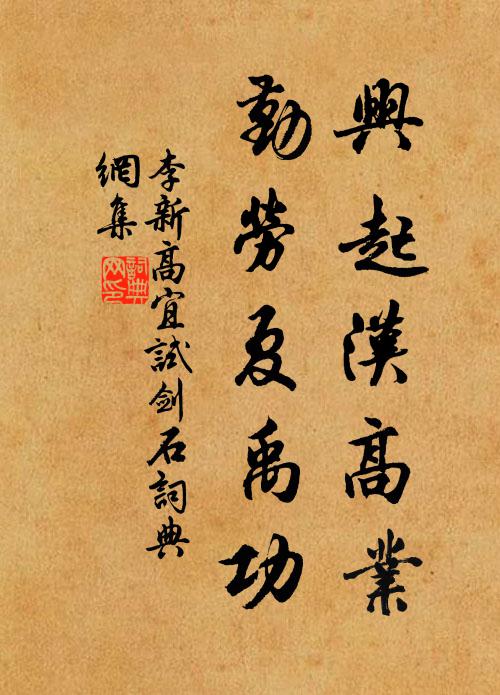 興起漢高業
勤勞夏禹功
李新高宜試劍石詞典
網集
詞典网印